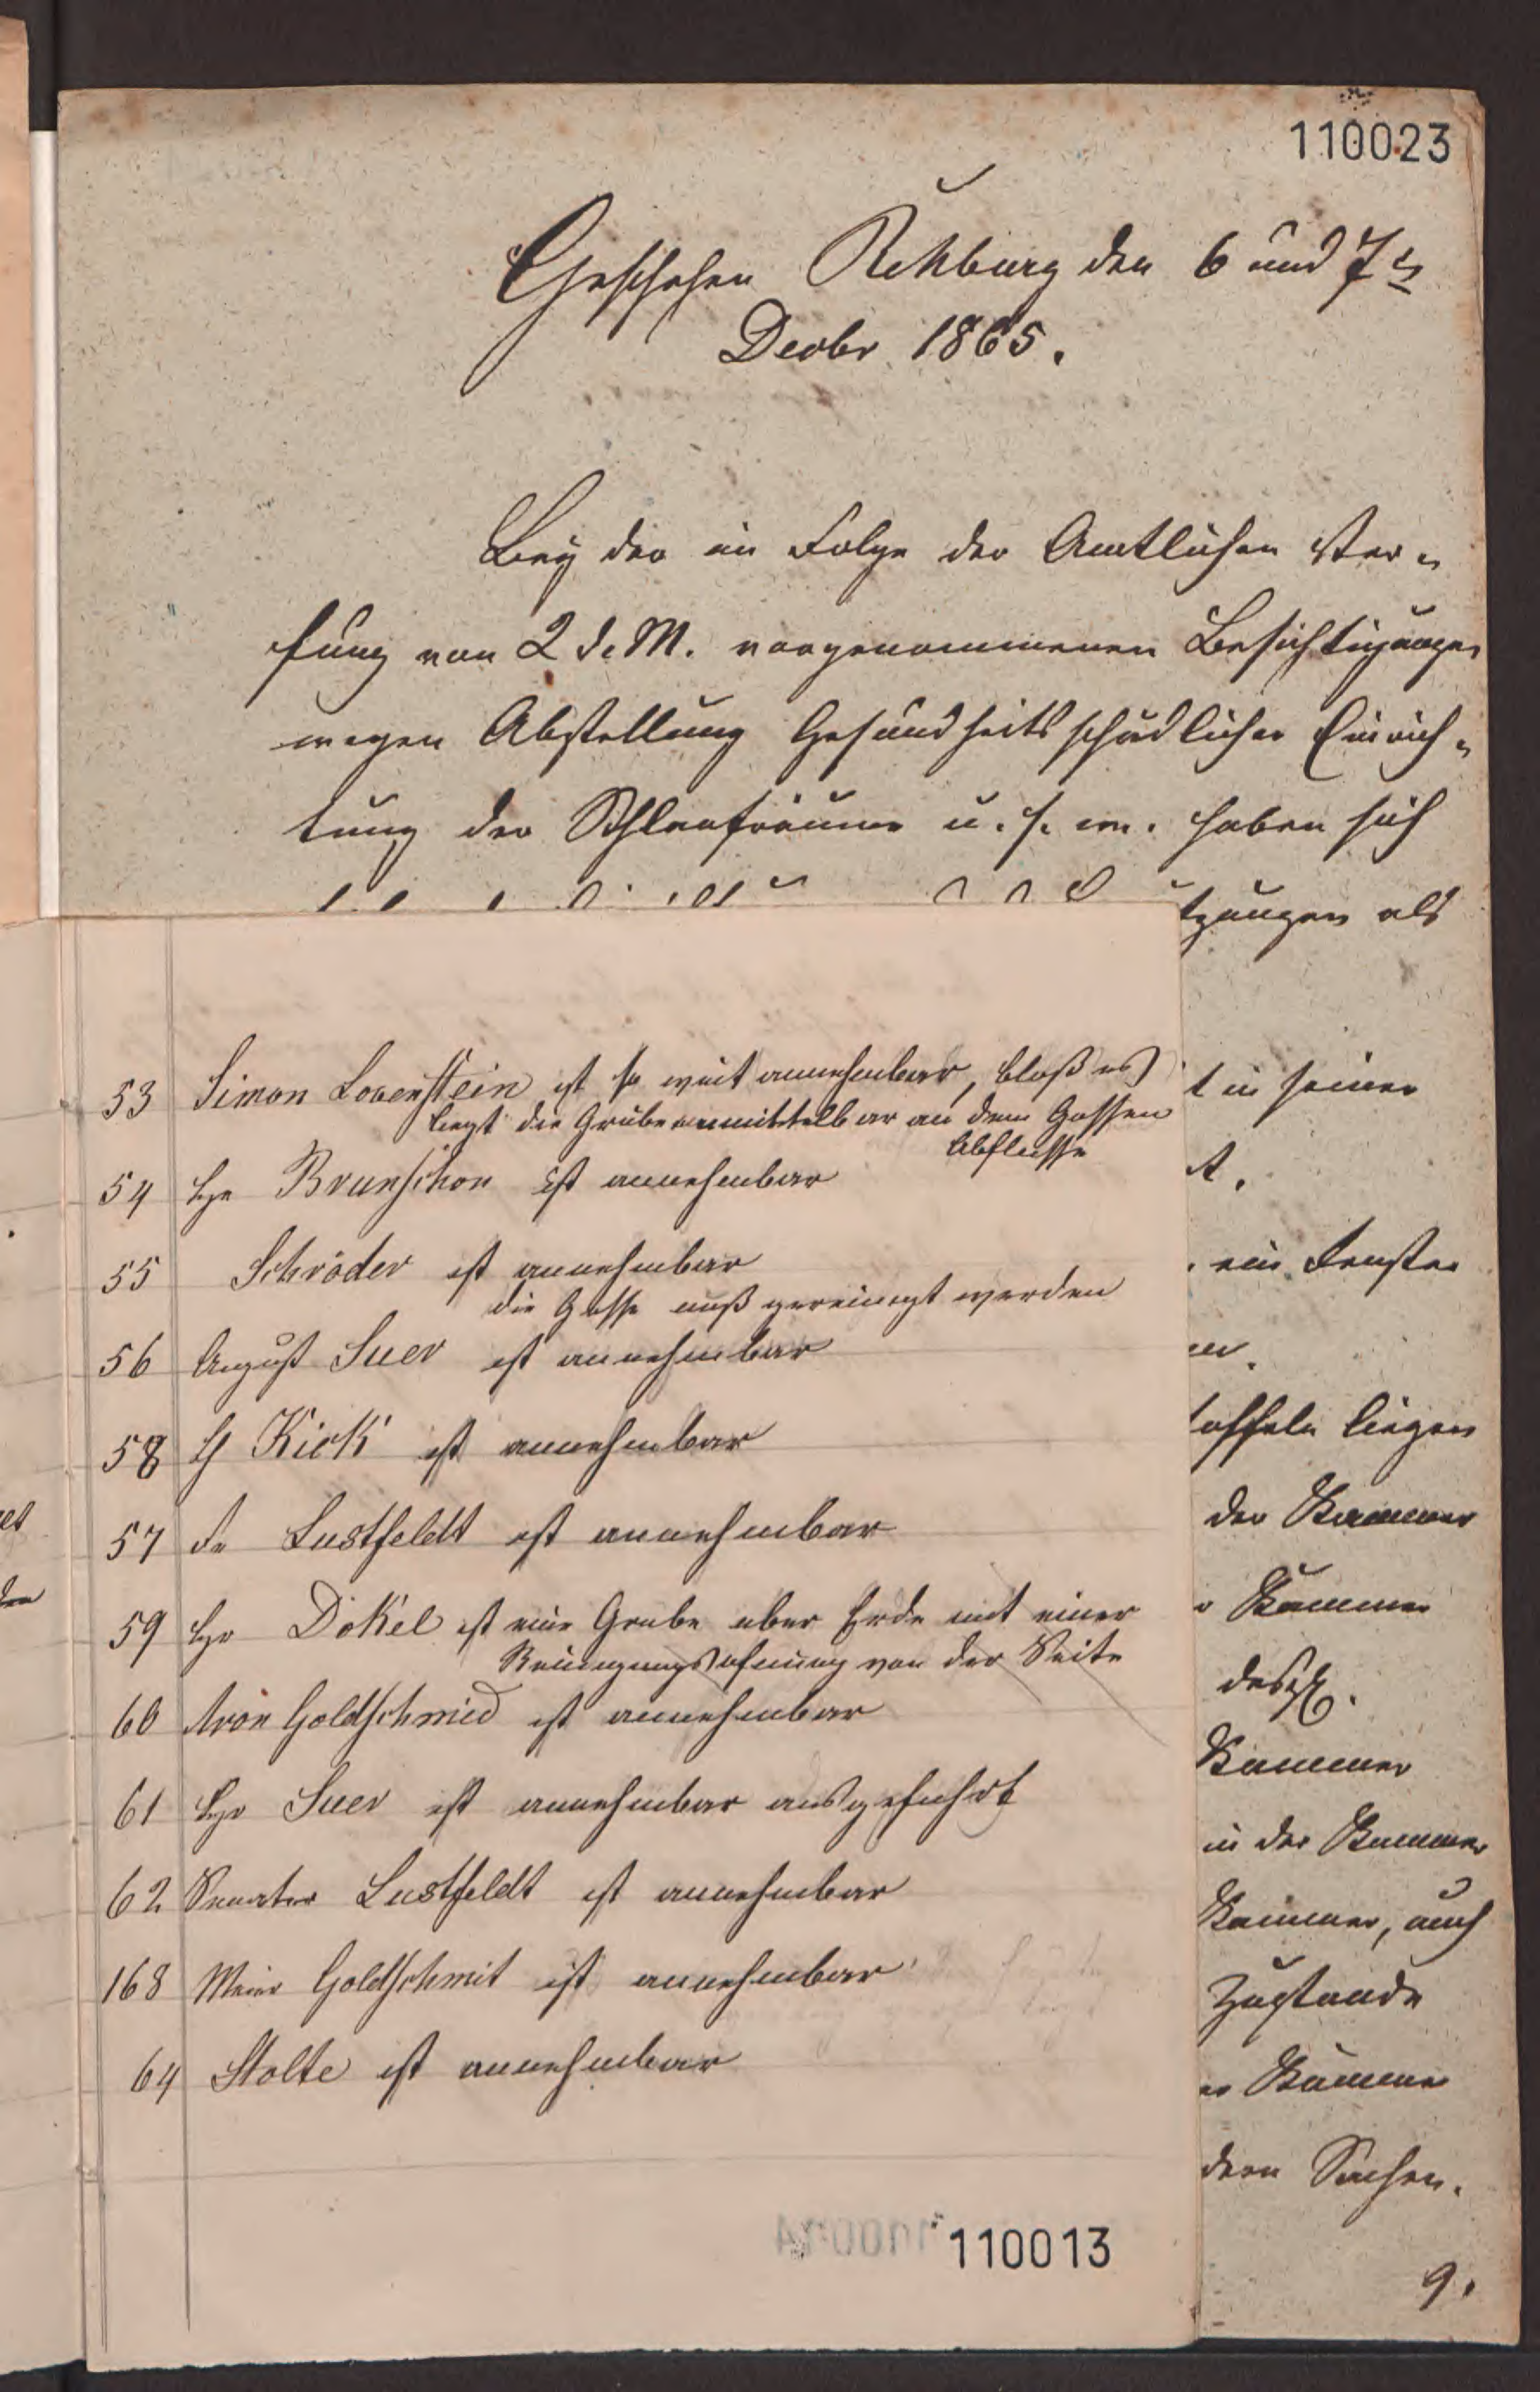 110023
Geschehen Rehburg den 6 und 7ten
Decbr 1865.
Bey der in Folge der Amtlichen Ver-
fung von 2 d. M. vorgenommenen Besichtigungen
wegen Abstellung Gesundheitsschädlicher Einrich-
tung der Schlafräume u. s. w. haben sich
tzungen als
t in seiner
t.
ein Fenster
toffeln liegen
der Kammer
Kammer
desgl.
Kammer
in der Kammer
Kammer, auch
Zustande
Kammer
dern Sachen.
9.
53 Simon Lovenstein ist so weit annehmbar, bloß es
liegt die Grube unmittelbar an dem Gossen
Abflusse
54 Hr Brunschon ist annehmbar
55 Schröder ist annehmbar
die Gosse muß gereinigt werden
56 August Suer ist annehmbar
58 H Kick ist annehmbar
57 Lustfeldt ist annehmbar
59 Hr Dökel ist eine Grube uber Erde mit einer
Reinigungsofnung von der Seite
60 Aron Goldschmied ist annehmbar
61 Hr Suer ist annehmbar ausgefuhrt
62 Senator Lustfeldt ist annehmbar
168 Meier Goldschmit ist annehmbar
64 Stolte ist annehmbar
110013